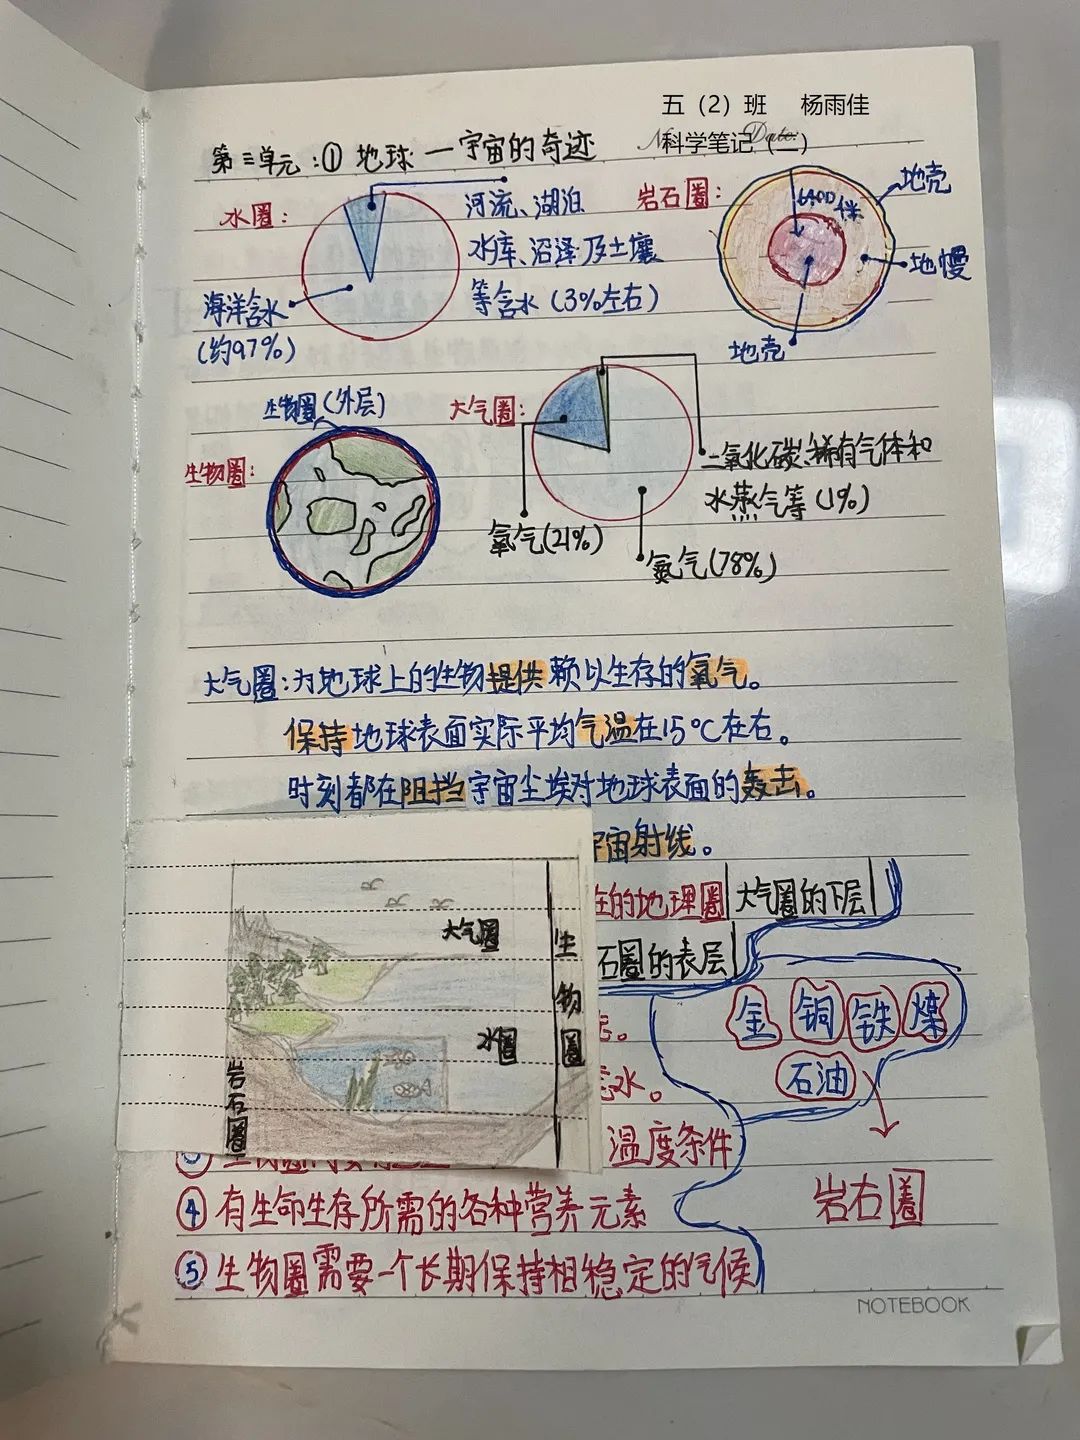 五（2）班 杨雨佳
科学笔记（二）
第三单元:① 地球—宇宙的奇迹
水圈:
河流、湖泊
水库、沼泽及土壤
等含水（3%左右）
海洋含水
(约97%)
岩石圈:
地壳
6400
地慢
地壳
生物圈(外层)
生物圈:
大气圈:
二氧化碳、稀有气体和
水蒸气等（1%）
氧气(21%)
氮气(78%)
大气圈:为地球上的生物提供赖以生存的氧气。
保持地球表面实际平均气温在15℃在右。
时刻都在阻挡宇宙尘埃对地球表面的轰击。
宇宙射线。
在的地理圈 大气圈的下层
石圈的表层
大气圈
水圈
生物圈
岩石圈
金 铜 铁 煤
石油
水。
温度条件
岩右圈
④ 有生命生存所需的各种营养元素
⑤ 生物圈需要一个长期保持相稳定的气候
NOTEBOOK